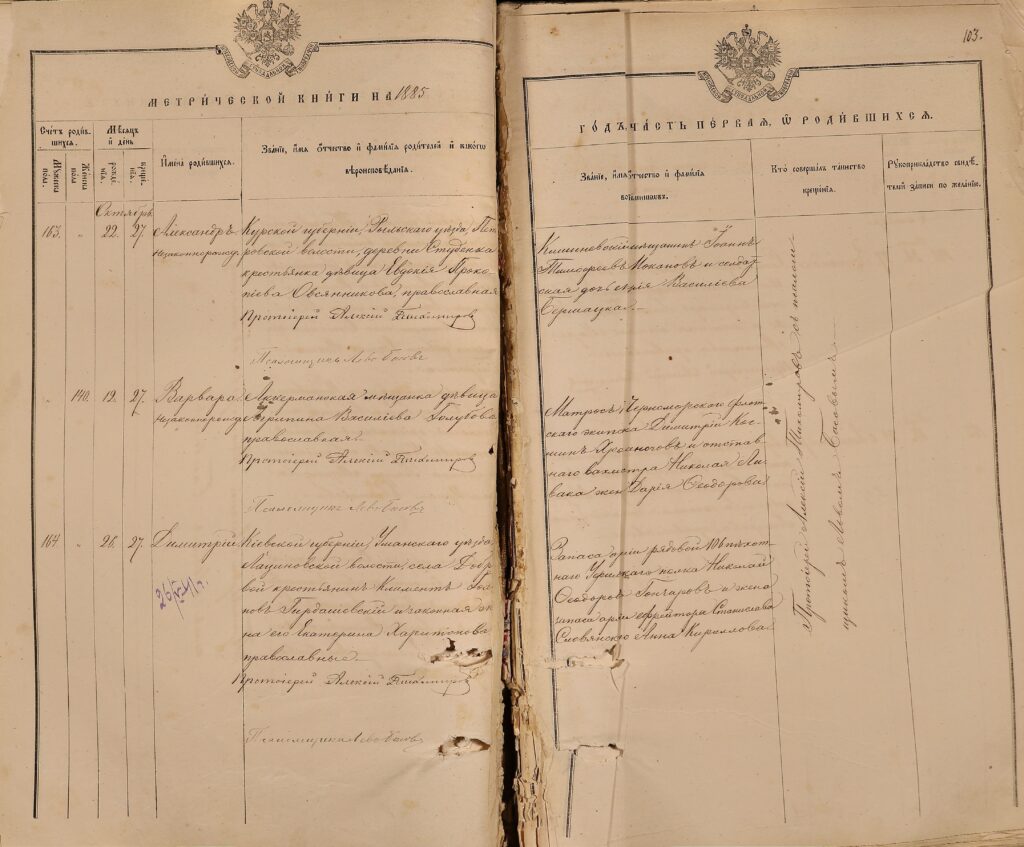 103.
МЕТРИЧЕСКОЙ КНИГИ НА 1885
ГОДЪ, ЧАСТЬ ПЕРВАЯ, Ѿ РОДИВШИХСЯ.
Счетъ родив-
шихся.
Мужеска пола.
Женска пола
Мѣсяцъ
и день
рожде-
нія.
креще-
нія.
Имена родившихся.
Званіе, имя отчество и фамилія родителей и какого
вѣроисповѣданія.
Званіе, имя отчество и фамилія
воспріемниковъ.
Кто совершалъ таинство
крещенія.
Рукоприкладство свидѣ-
телей записи по желанію.
Октябрь
163. " 22. 27. Александръ
незаконнорожд.
Курской губерніи, Рыльскаго уѣзда, Пет
ровской волости, деревни Студенка
крестьянка дѣвица Евдокія Проко
піева Овсянникова, православная
Протоіерей Алексій Тихомировъ
Псаломщикъ Левъ Басовъ
Кишиневскій мѣщанинъ Іоаннъ
Тимофеевъ Мокановъ и солдат
ская дочь Васильева
" 140. 19. 27. Варвара
незаконнорожд
Аккерманская мѣщанка дѣвица
Агрипина Васильева Голубова
православная.
Протоіерей Алексій Тихомировъ
Псаломщикъ Левъ Басовъ
Матросъ Черноморскаго флот
скаго экипажа Димитрій
и отстав
наго вахмистра Николая Ли
вака жена Дарія Ѳеодорова
164. " 26. 27. Димитрій
Кіевской губерніи, Уманскаго уѣзда
волости, села
вой крестьянинъ Климентъ
новъ и законная же
на его Екатерина Харитонова
православные.
Протоіерей Алексій Тихомировъ
Псаломщикъ Левъ Басовъ
Запаса арміи рядовой пѣхот
наго полка Николай
Ѳеодоровъ Гончаровъ и жена
запаса арміи ефрейтора Станислава
Словянскаго Анна Кириллова
Протоіерей Алексій Тихомировъ съ псалом
щикомъ Львомъ Басовымъ